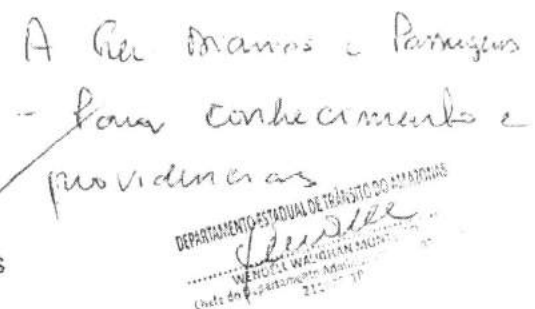 A Ger Diarias e Passagens
- Para conhecimento e
providencias
DEPARTAMENTO ESTADUAL DE TRÂNSITO DO AMAZONAS
WENDELL WAUGHAN
Chefe do Departamento
s